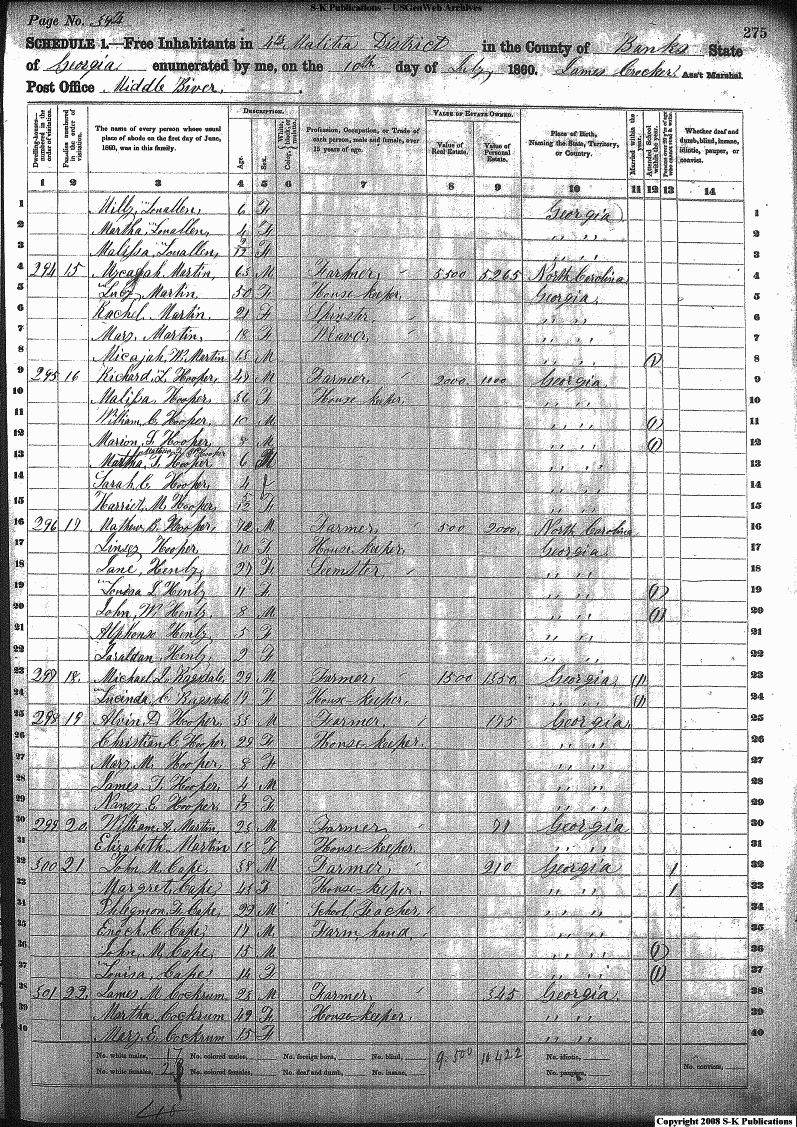 S-K Publications – USGenWeb Archives
Page No. 275
SCHEDULE 1.—Free Inhabitants in 4th Malitia District in the County of Banks State
of Georgia enumerated by me, on the 10th day of July 1860. James Crocker Ass't Marshal.
Post Office Middle River,
DESCRIPTION. VALUE OF ESTATE OWNED.
Dwelling-houses—numbered in the order of visitation. Families numbered in the order of visitation. The name of every person whose usual place of abode on the first day of June, 1860, was in this family. Age. Sex. Color, White, black, or mulatto. Profession, Occupation, or Trade of each person, male and female, over 15 years of age. Value of Real Estate. Value of Personal Estate. Place of Birth, Naming the State, Territory, or Country. Married within the year. Attended School within the year. Persons over 20 y'rs of age who cannot read & write. Whether deaf and dumb, blind, insane, idiotic, pauper, or convict.
1 2 3 4 5 6 7 8 9 10 11 12 13 14
1 Milly " Louallen, 6 F Georgia 1
2 Martha " Louallen, 4 F " " 2
3 Malissa " Louallen, F " " 3
4 294 15 Mycajah Martin, 63 M Farmer, 5500 5265 North Carolina 4
5 Martin, 50 F House keeper, Georgia 5
6 Rachel, Martin, 21 F Spinster, " " 6
7 Mary, Martin, 18 F Weaver, " " 7
8 Micajah, W. Martin 15 M " " (1) 8
9 295 16 Richard, L. Hooper, 49 M Farmer, 2000 1100 Georgia 9
10 Malissa, Hooper, 36 F House keeper, " " 10
11 William C. Hooper, 10 M " " (1) 11
12 Marion, F. Hooper, 8 M " " (1) 12
13 Martha, F. Hooper, 6 " " 13
14 Sarah, C. Hooper, 4 F " " 14
15 Harriet, M. Hooper, 5/12 F " " 15
16 296 17 Mathew, B. Hooper, M Farmer, 500 2000 North Carolina 16
17 Linsey Hooper, 70 F House keeper, Georgia 17
18 Jane, Henly, 27 F Seemster, " " 18
19 Louisa J. Henly 11 F " " (1) 19
20 John, W. Henly, 8 M " " (1) 20
21 Alphonse Henly, 5 F " " 21
22 Henly, 2 F " " 22
23 297 18. Michael, L. Ragsdale, 29 M Farmer, 1500 1350 Georgia (1) 23
24 Lucinda, C. Ragsdale, 19 F House keeper, " " (1) 24
25 298 19 Alvin, D. Hooper, 35 M Farmer, 175 Georgia 25
26 Christian C. Hooper, 29 F House keeper. " " 26
27 Mary, M. Hooper, 8 F " " 27
28 James, F. Hooper, 4 M " " 28
29 Nancy E. Hooper, F " " 29
30 299 20. William A. Martin 25 M Farmer 91 Georgia 30
31 Elizabeth Martin 18 F House keeper " " 31
32 300 21 John N. Cape, 58 M Farmer, 210 Georgia 1 32
33 Margret, Cape, 48 F House keeper, " " 1 33
34 Philegmon, F. Cape, 22 M School Teacher, " " 34
35 Enoch, C. Cape, 17 M Farm hand, " " 35
36 John, M. Cape, 15 M " " (1) 36
37 Louisa, Cape, 14 F " " (1) 37
38 301 22. James M. Cockrum 25 M Farmer, 345 Georgia 38
39 Martha Cockrum 49 F House keeper, " " 39
40 Mary, E. Cockrum 15 F " " 40
No. white males, 17 No. colored males, No. foreign born, No. blind, 9.500 No. idiotic,
No. white females, No. colored females, No. deaf and dumb, No. insane, No. paupers, No. convicts,
40
Copyright 2008 S-K Publications